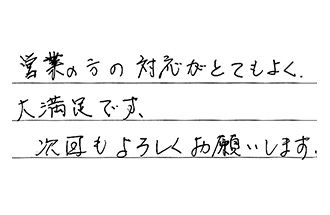 営業の方の対応がとてもよく、
大満足です、
次回もよろしくお願いします。